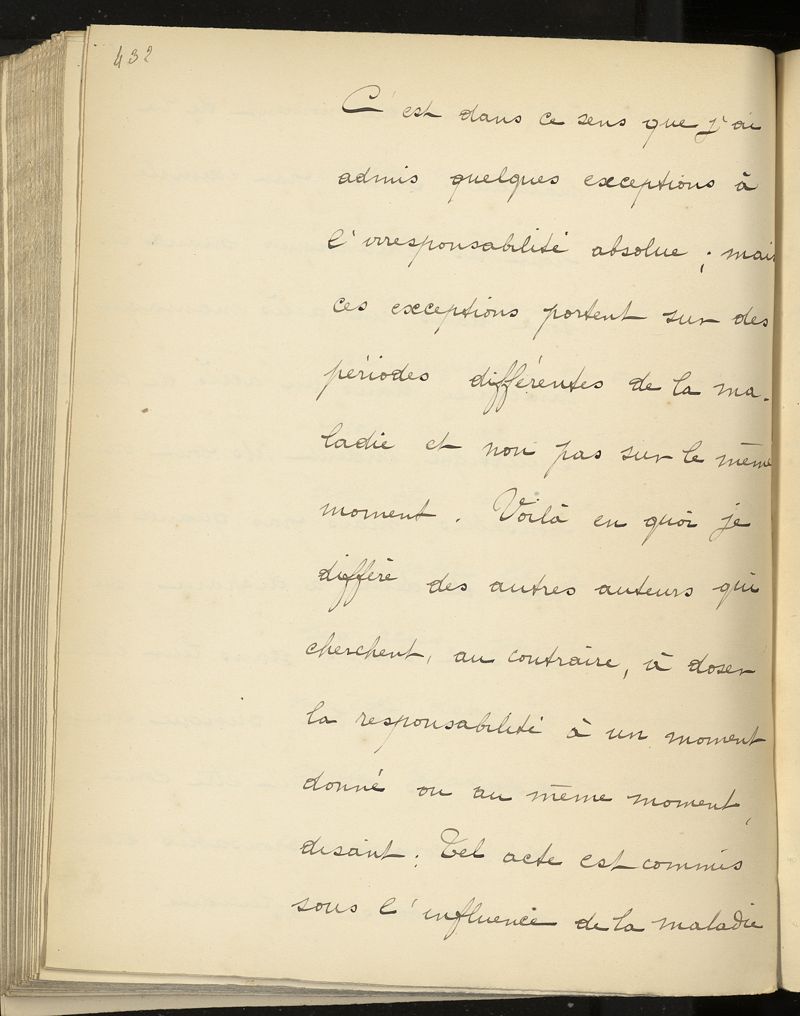 432
C'est dans ce sens que j'ai
admis quelques exceptions à
l'irresponsabilité absolue ; mais
ces exceptions portent sur des
périodes différentes de la ma-
ladie et non pas sur le même
moment. Voilà en quoi je
differe des autres auteurs qui
cherchent, au contraire, à doser
la responsabilité à un moment
donné ou au même moment,
disant : Tel acte est commis
sous l'influence de la maladie